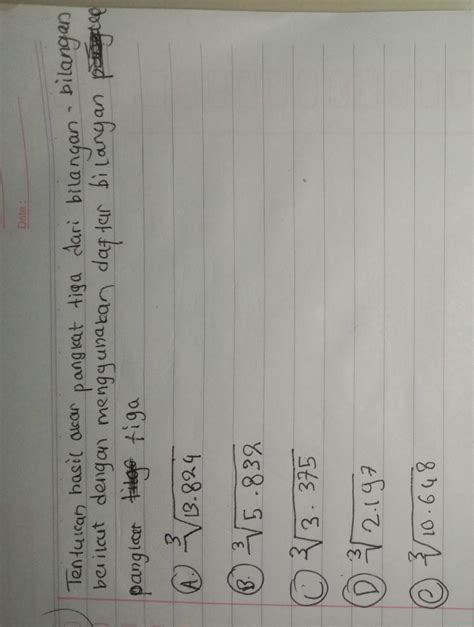 Date :
Tentukan hasil akar pangkat tiga dari bilangan - bilangan
berikut dengan menggunakan daftar bilangan
pangkat tiga
A. ∛13.824
B. ∛5.832
C ∛3.375
D ∛2.197
e ∛10.648